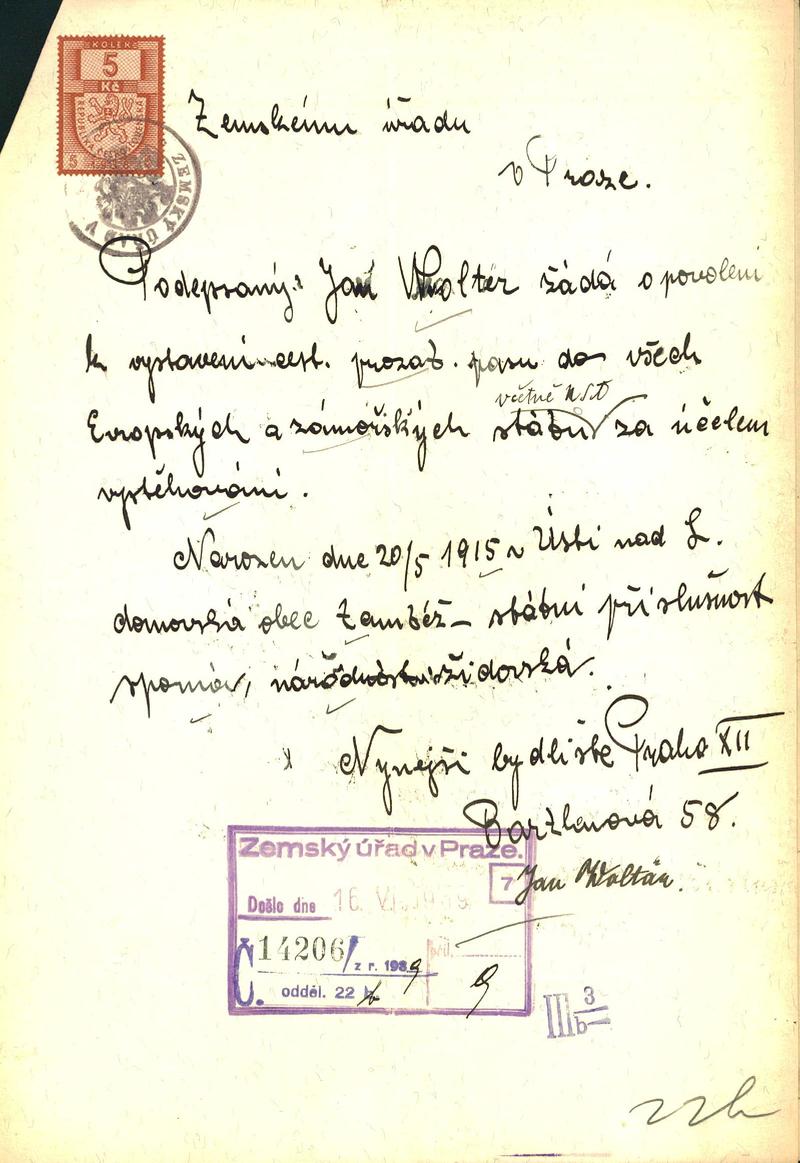 KOLEK
5
Kč
ZEMSKÝ ÚŘAD V
Zemskému úřadu
v Praze.
Podepsaný: Jan Woltär žádá o povolení
k vystavení cest. prozat. pasu do všech
včetně USA
Evropských a zámořských států za účelem
vystěhování.
Narozen dne 20/5 1915 v Ústí nad L.
domovská obec Žamběž – státní příslušnost
národnost židovská.
Nynejší bydliště Praha XII
58.
Jan Woltär.
Zemský úřad v Praze.
7
Došlo dne 16. VI. 1939
Č. 14206/ z r. 1939
odděl. 22 b 9
III 3
b
22b